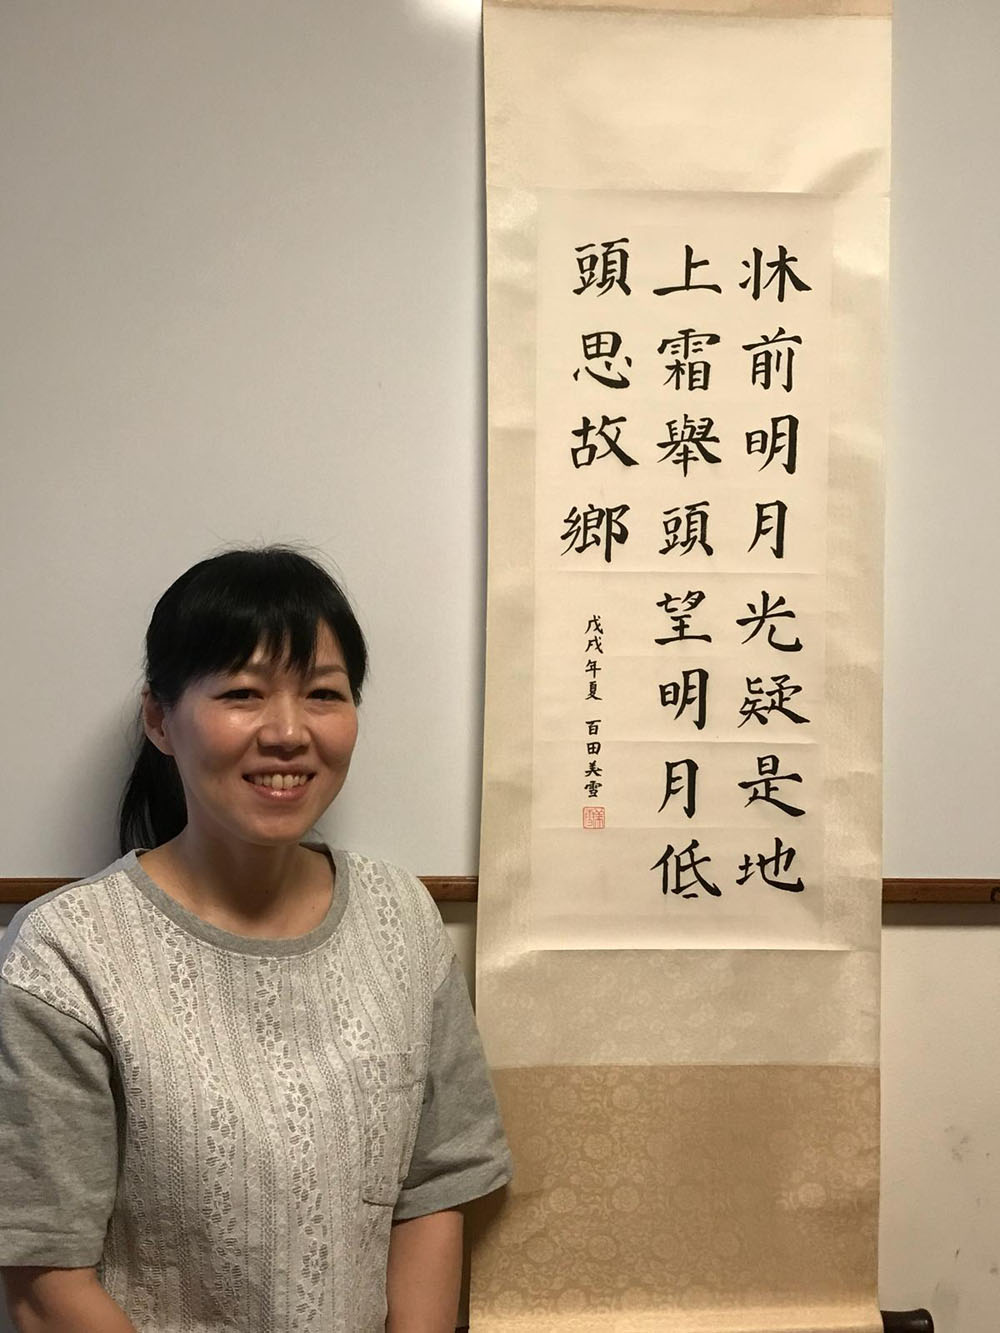 牀前明月光疑是地
上霜舉頭望明月低
頭思故鄉
戊戌年夏 百田美雪